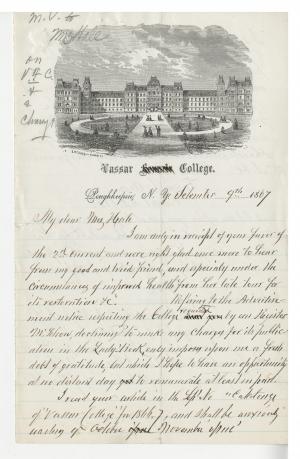 M. V. to
Mrs Hale
on
V. C.
&
a
change
Vassar Female College.
Poughkeepsie, N. Y. September 9th 1867
My dear Mrs. Hale
I am duly in receipt of your favor of
the 7th current and was right glad once more to hear
from my good and kind friend, and especially under the
circumstances of improved health from her late tour for
its restoration &c. Refering to the Advertise-
ment notice respecting the College by
declining to make any charge for its public
ation in the Lady's Book only impose upon me a fresh
debt of gratitude, but which I hope to have an opportunity
at no distant day to remunerate at least in part.
I read your article in the Sept No
of Vassar College for 1866.7, and shall be anxiously
waiting of October November